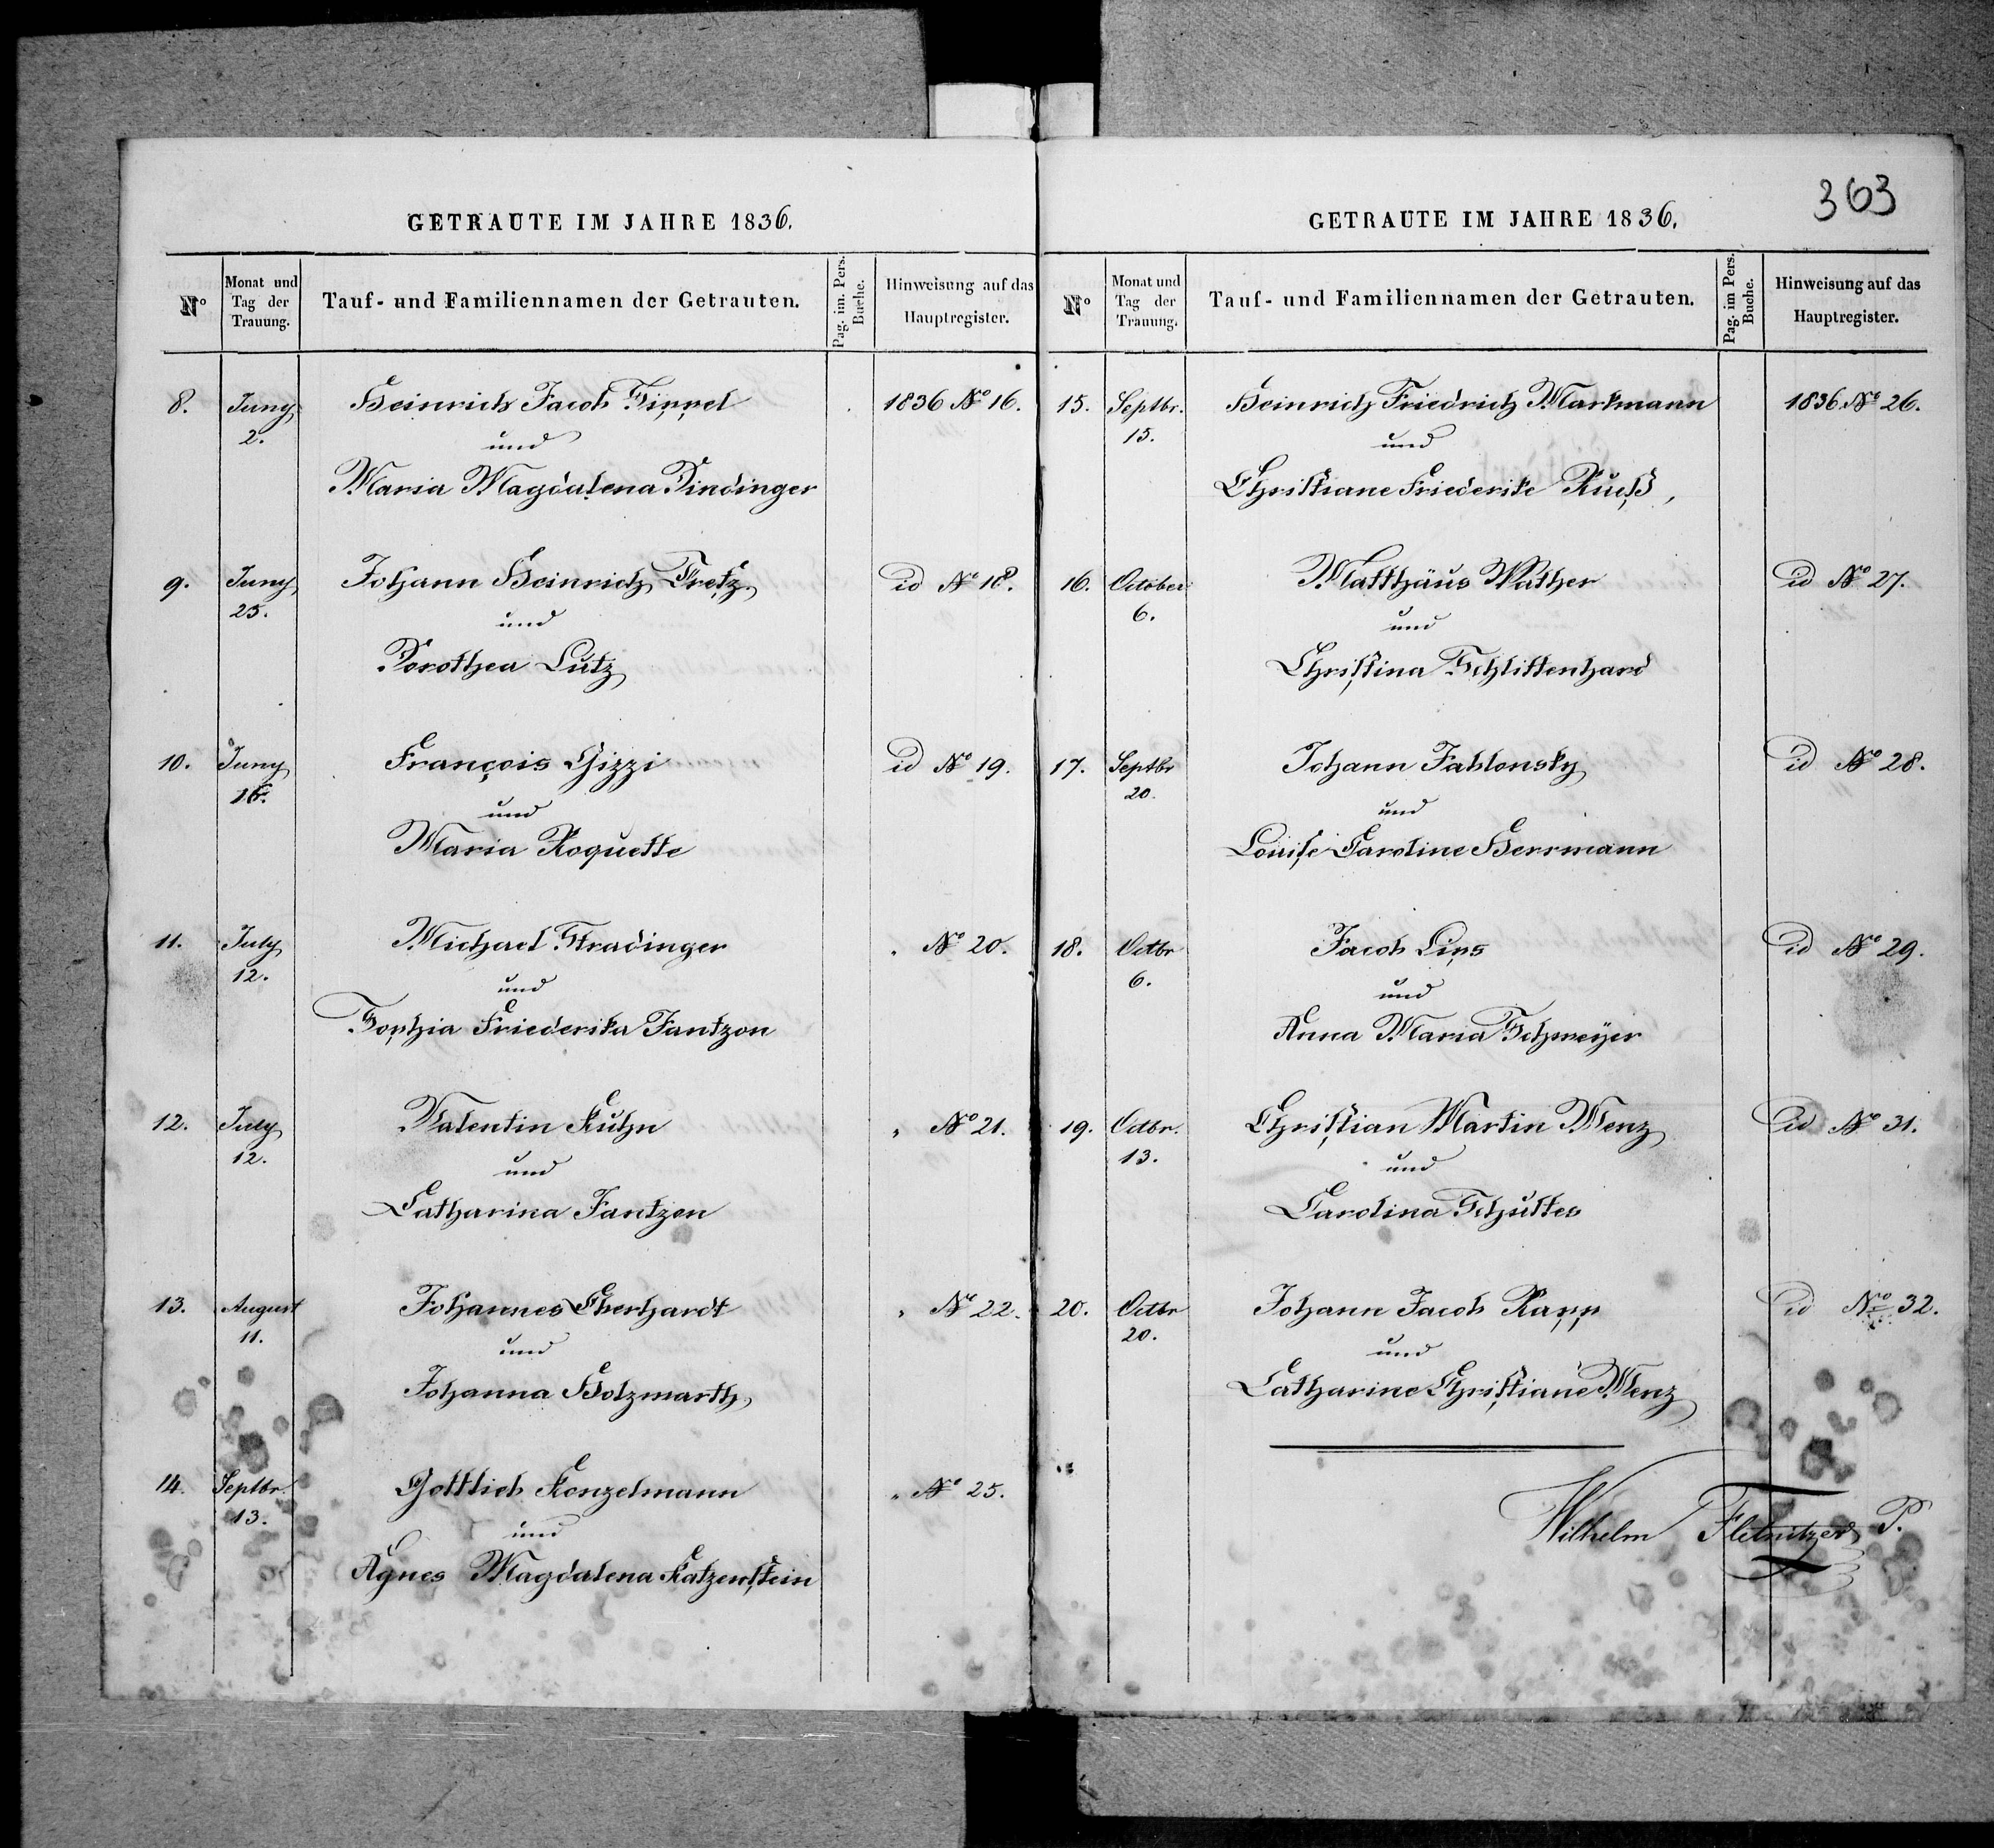 363
GETRAUTE IM JAHRE 1836.
N° Monat und Tag der Trauung. Tauf- und Familiennamen der Getrauten. Pag. im. Pers. Buche. Hinweisung auf das Hauptregister.
8. Juny 2. Heinrich Jacob Sippel 1836 N° 16.
und
Maria Magdalena Dindinger
9. Juny 25. Johann Heinrich Tretz id N° 18.
und
Dorothea Lutz
10. Juny 16. François Gizzi id N° 19.
und
Maria Roquette
11. July 12. Michael Stradinger " N° 20.
und
Sophia Friederika Jantzon
12. July 12. Valentin Kuhn " N° 21.
und
Catharina Jantzen
13. August 11. Johannes Eberhardt " N° 22.
und
Johanna Holzwarth
14. Septbr. 13. Gottlieb Konzelmann " N° 25.
und
Agnes Magdalena Katzenstein
GETRAUTE IM JAHRE 1836.
N° Monat und Tag der Trauung. Tauf- und Familiennamen der Getrauten. Pag. im Pers. Buche. Hinweisung auf das Hauptregister.
15. Septbr. 15. Heinrich Friedrich Markmann 1836 N° 26.
und
Christiane Friederike Ruß,
16. October 6. Matthäus Wather id N° 27.
und
Christina Schlittenhard
17. Septbr 20. Johann Jablonsky id N° 28.
und
Louise Caroline Herrmann
18. Octbr 6. Jacob Lips id N° 29.
und
Anna Maria Schweÿer
19. Octbr. 13. Christian Martin Menz id N° 31.
und
Carolina Schultes
20. Octbr 20. Johann Jacob Rapp id N° 32.
und
Catharine Christiane Menz
Wilhelm Fletnitzer P.